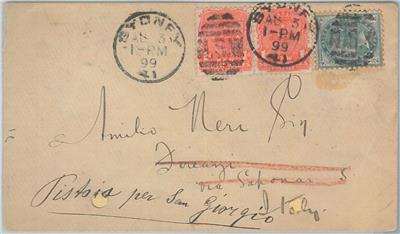 SYDNEY
AU 3
1-PM
99
41
SYDNEY
AU 3
1-PM
99
41
NSW
Amilio Neri Sig
Firenze
via
Pistoia per San Giorgio
Italy